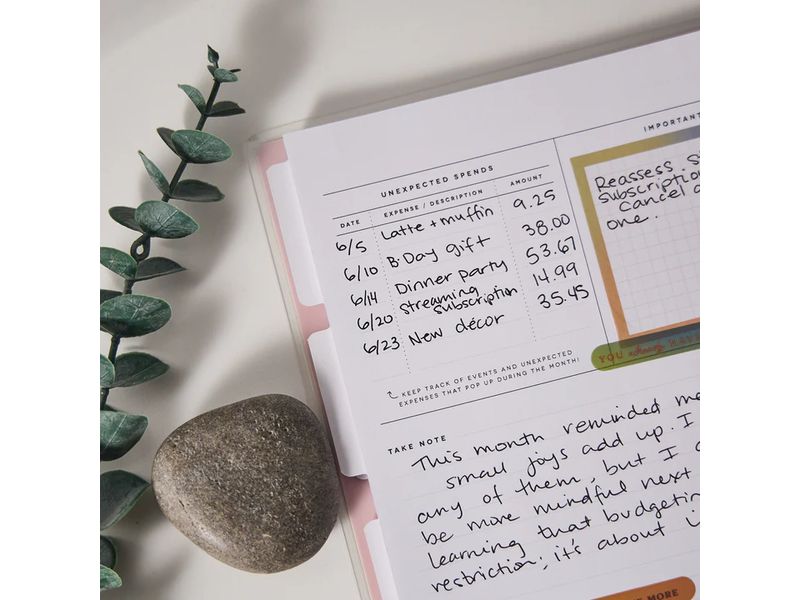 UNEXPECTED SPENDS
DATE EXPENSE / DESCRIPTION AMOUNT
6/5 Latte + muffin 9.25
6/10 B-Day gift 38.00
6/14 Dinner party 53.67
6/20 Streaming subscription 14.99
6/23 New décor 35.45
KEEP TRACK OF EVENTS AND UNEXPECTED
EXPENSES THAT POP UP DURING THE MONTH!
IMPORTANT
Reassess
subscription
cancel
one.
YOU
TAKE NOTE
This month reminded me
small joys add up. I
any of them, but I
be more mindful next
learning that budgeting
restriction; it's about
MORE